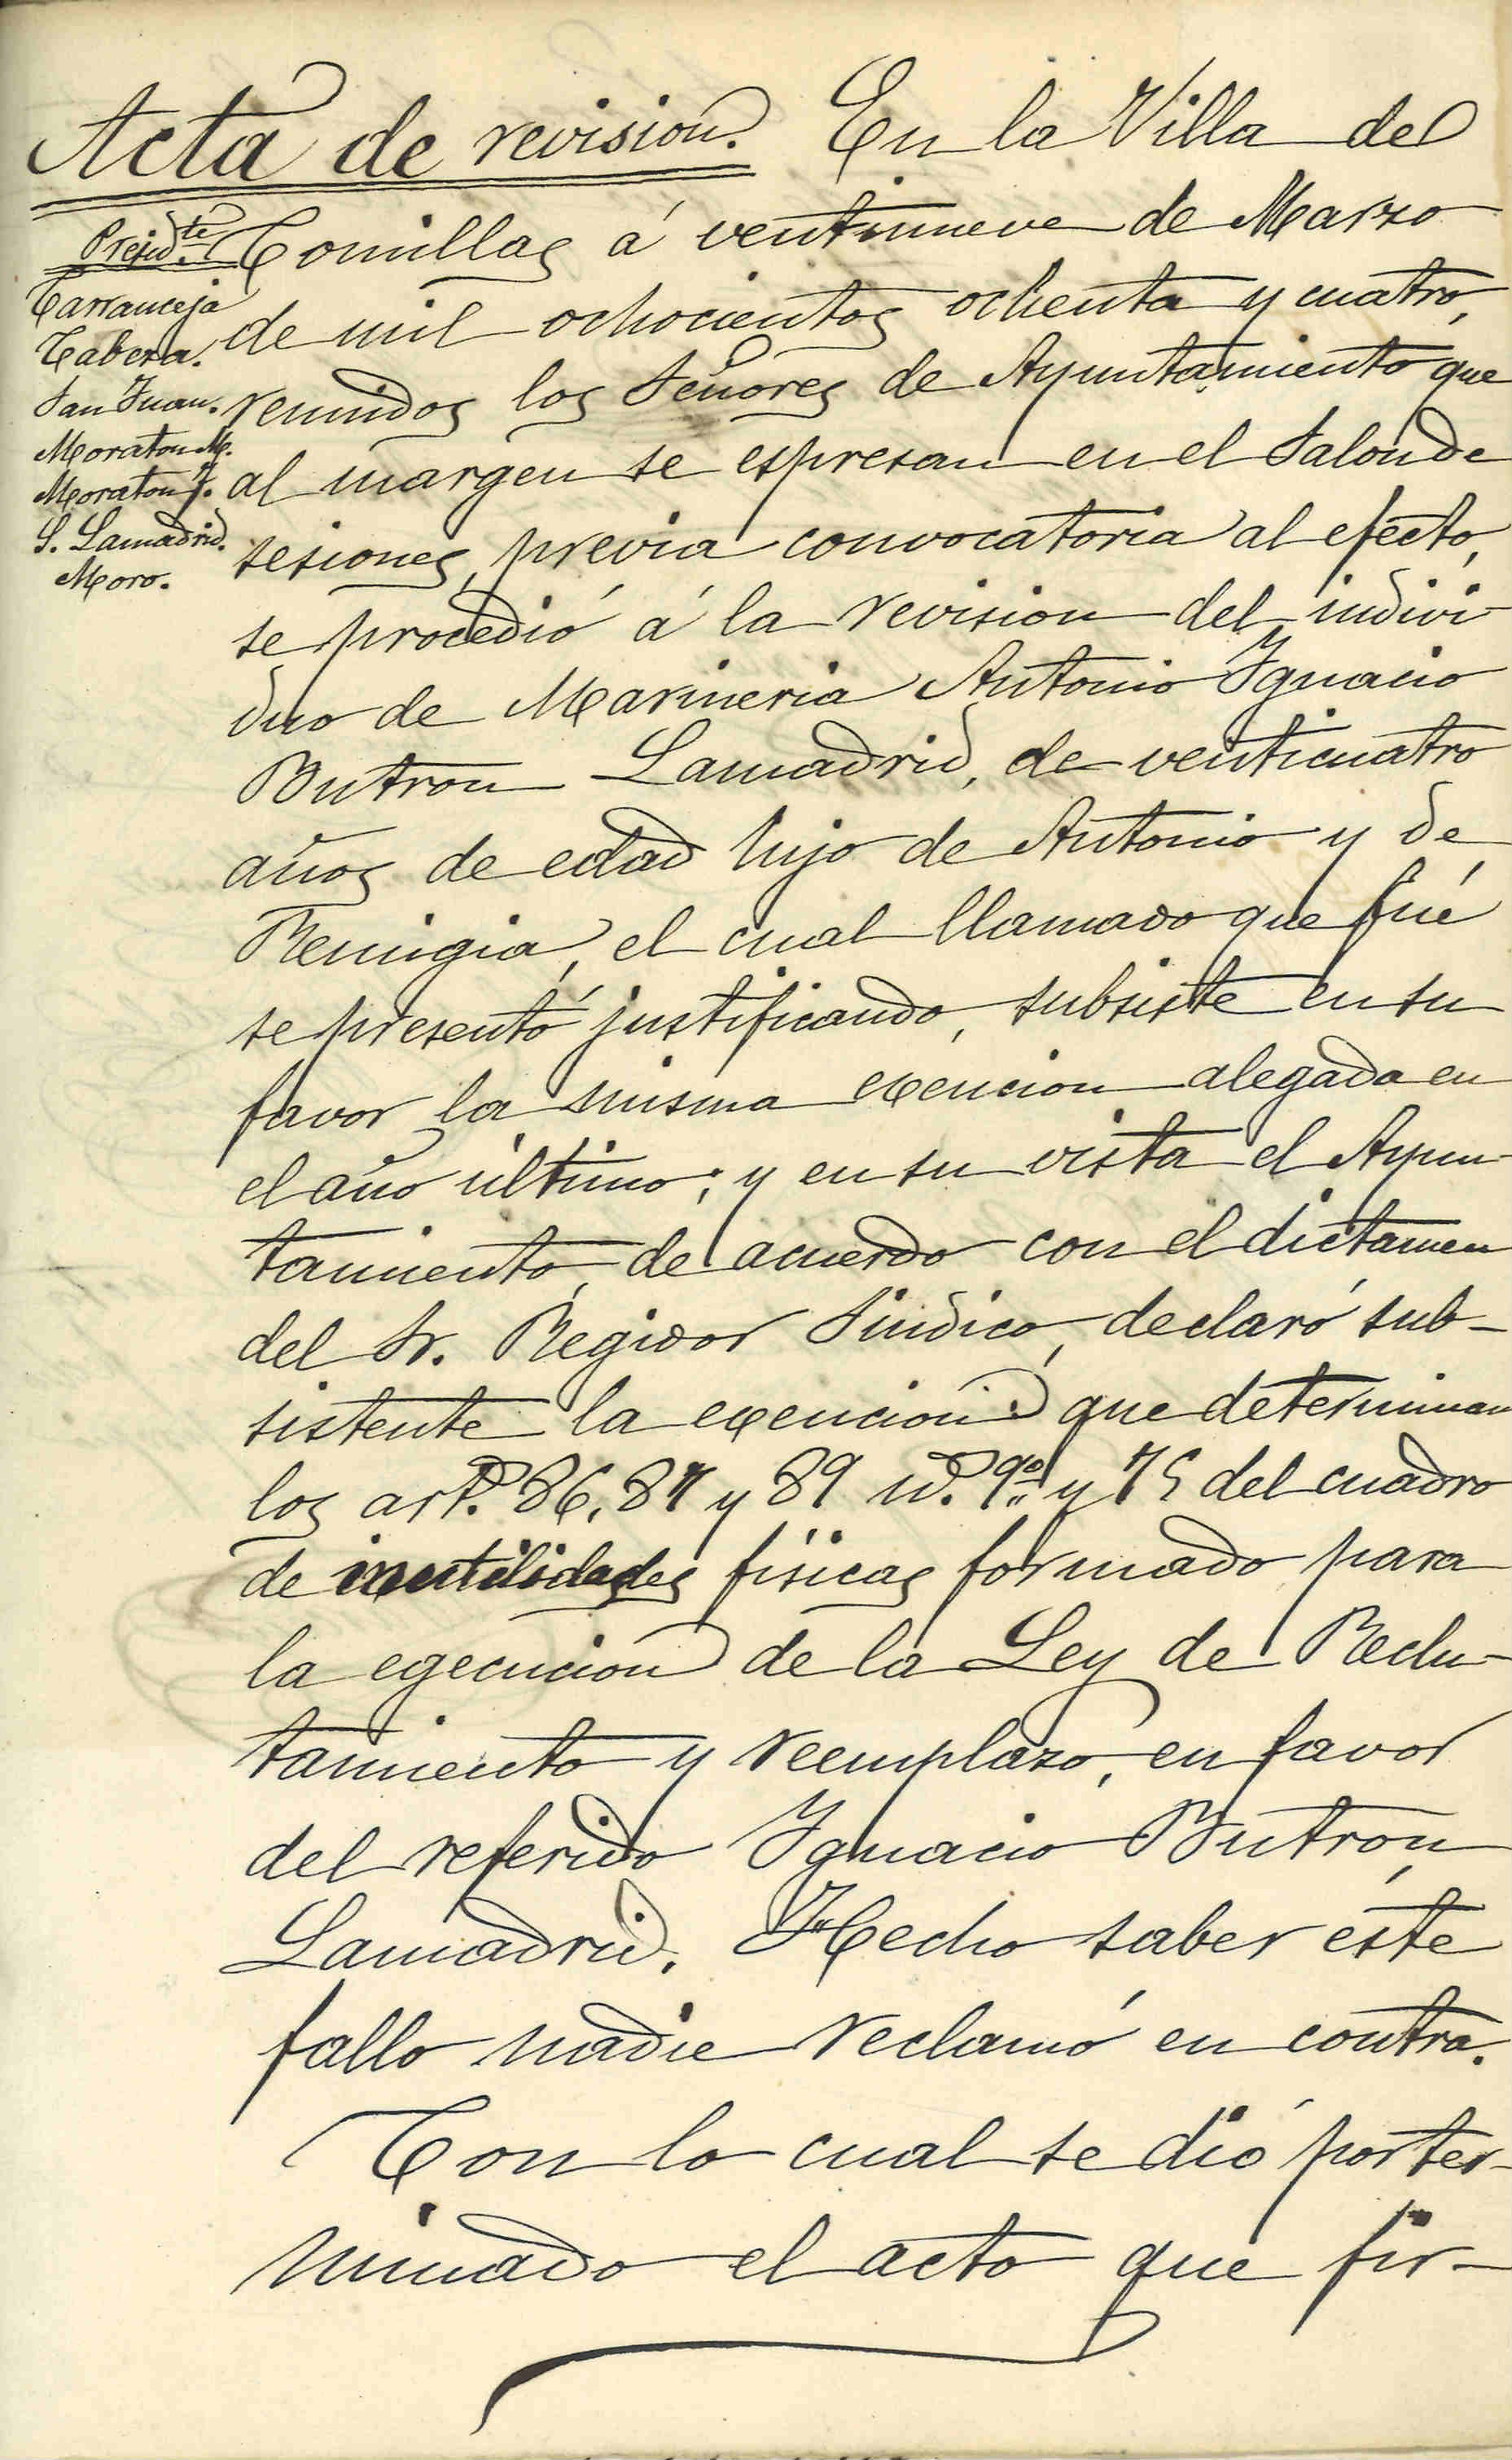 Acta de revision. En la Villa de
Presid.te
Carranceja
Cabeza.
San Juan.
Moraton M.
Moraton J.
S. Lamadrid.
Moro.
Comillas á ventinueve de Marzo
de mil ochocientos ochenta y cuatro,
reunidos los Señores de Ayuntamiento que
al margen se espresan en el Salon de
sesiones, previa convocatoria al efecto,
se procedió á la revision del indivi
duo de Marineria Antonio Ygnacio
Butron Lamadrid, de venticuatro
años de edad hijo de Antonio y de
Remigia, el cual llamado que fué
se presentó justificando, subsiste en su
favor la misma exencion alegada en
el año último; y en su vista el Ayun-
tamiento, de acuerdo con el dictamen
del Sr. Regidor Sindico, declaró sub-
sistente la exencion que determinan
los art.s 86, 87 y 89 nº. 9º y 75 del cuadro
de inutilidades fisicas formado para
la egecucion de la Ley de Reclu-
tamiento y reemplazo, en favor
del referido Ygnacio Butron
Lamadrid. Hecho saber éste
fallo nadie reclamó en contra.
Con lo cual se dió por ter-
minado el acto que fir-